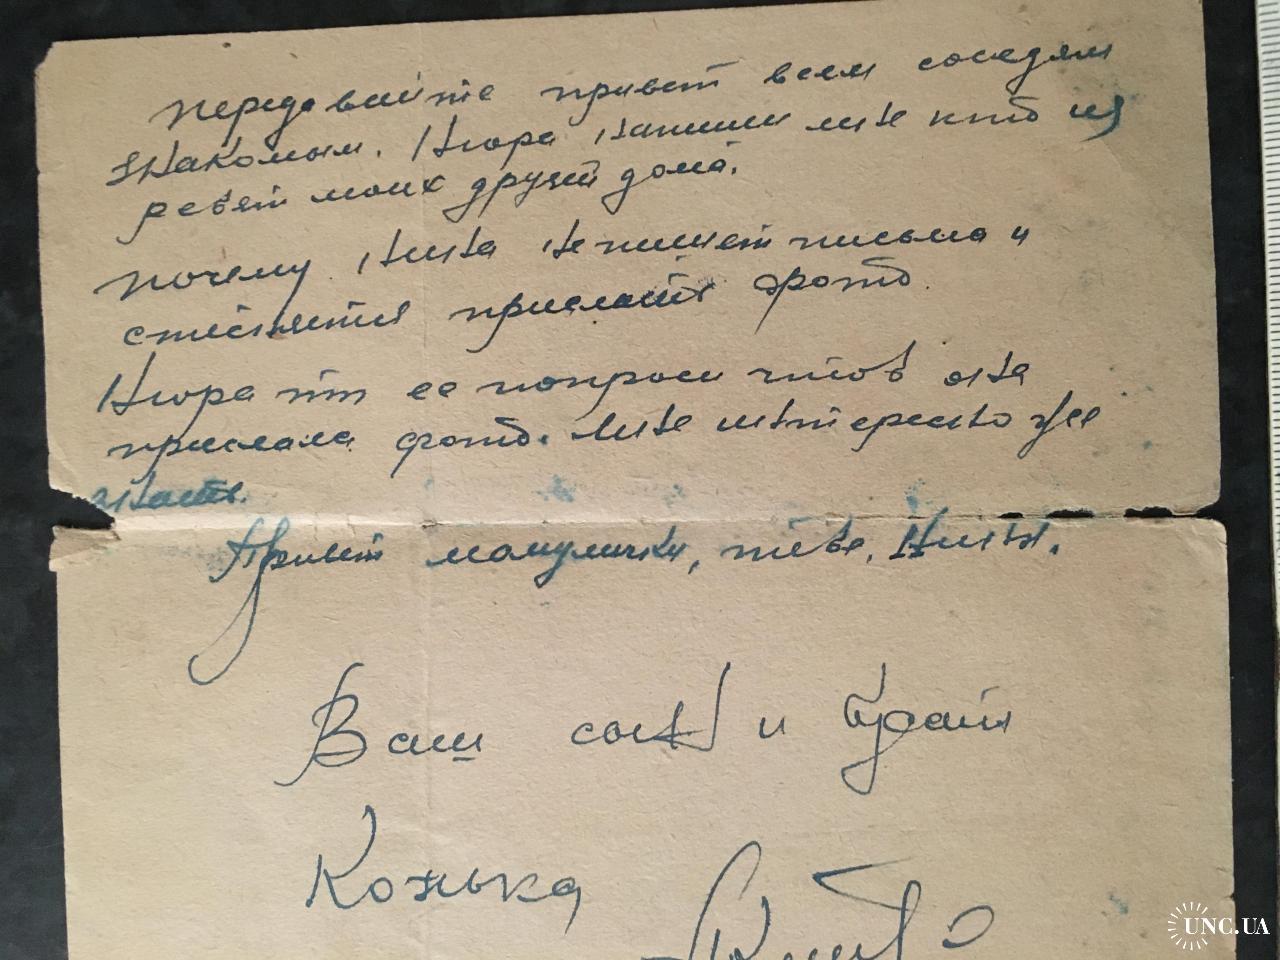 Передавайте привет всем соседям
знакомым. Нюра напиши мне кто из
ребят моих друзей дома.
Почему Нина не пишет письма и
стесняется прислать фото.
Нюра ты ее попроси чтоб она
прислала фото. Мне интересно уже
знать.
Привет мамулички, тебе, Нины.
Ваш сын и брат
Конька
UNC.UA